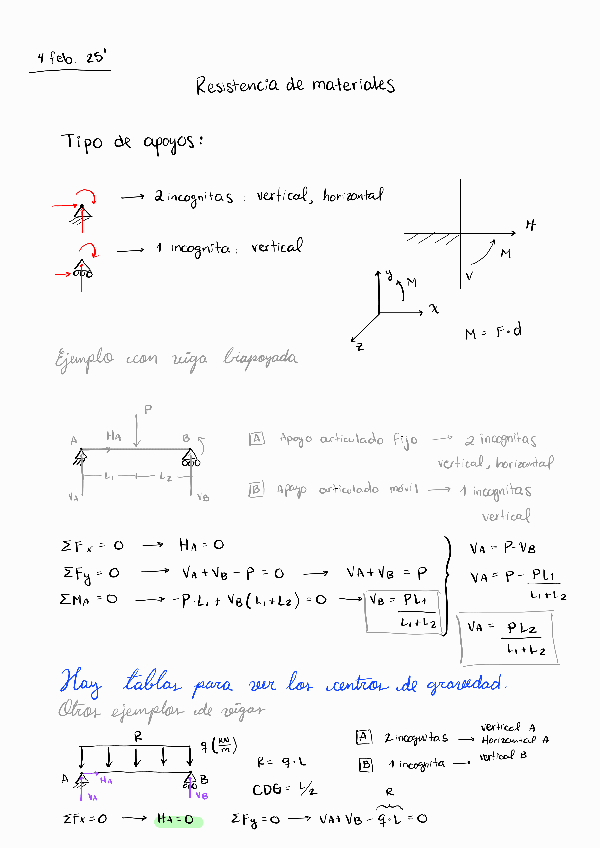 4 feb. 25'
Resistencia de materiales
Tipo de apoyos:
→ 2 incognitas : vertical, horizontal
→ 1 incognita : vertical
H
M
V
y
M
x
z
M = F·d
Ejemplo con viga biapoyada
P
A
HA
B
L1
L2
VA
VB
A Apoyo articulado fijo → 2 incognitas
vertical, horizontal
B Apoyo articulado móvil → 1 incognitas
vertical
ΣFx = 0 → HA = 0
ΣFy = 0 → VA + VB - P = 0 → VA + VB = P
ΣMA = 0 → -P·L1 + VB (L1+L2) = 0 → VB = PL1 / L1+L2
VA = P-VB
VA = P - PL1 / L1+L2
VA = PL2 / L1+L2
Hay tablas para ver los centros de gravedad.
Otros ejemplos de vigas
R
q (kN/m)
A
HA
B
VA
VB
R = q·L
CDG = L/2
A 2 incognitas → vertical A
Horizontal A
B 1 incognita → vertical B
R
ΣFx = 0 → HA = 0 ΣFy = 0 → VA + VB - q·L = 0